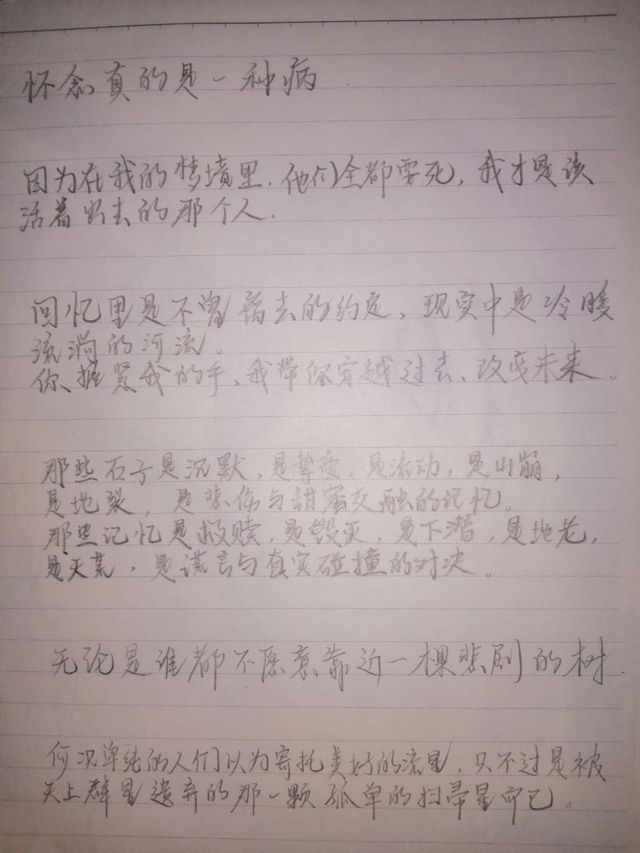 怀念真的是一种病
因为在我的梦境里，他们全都要死，我才是该
活着出去的那个人．
回忆里是不曾离去的约定，现实中是冷暖
流淌的河流。
你握紧我的手、我带你穿越过去、改变未来。
那些石子是沉默，是挚爱，是流动，是山崩，
是地裂，是悲伤与甜蜜交融的记忆。
那些记忆是救赎，是毁灭，是下潜，是地老，
是天荒，是谎言与真实碰撞的对决。
无论是谁都不愿意靠近一棵悲剧的树
何况单纯的人们以为寄托美好的流星，只不过是被
天上群星遗弃的那一颗孤单的扫帚星而已。